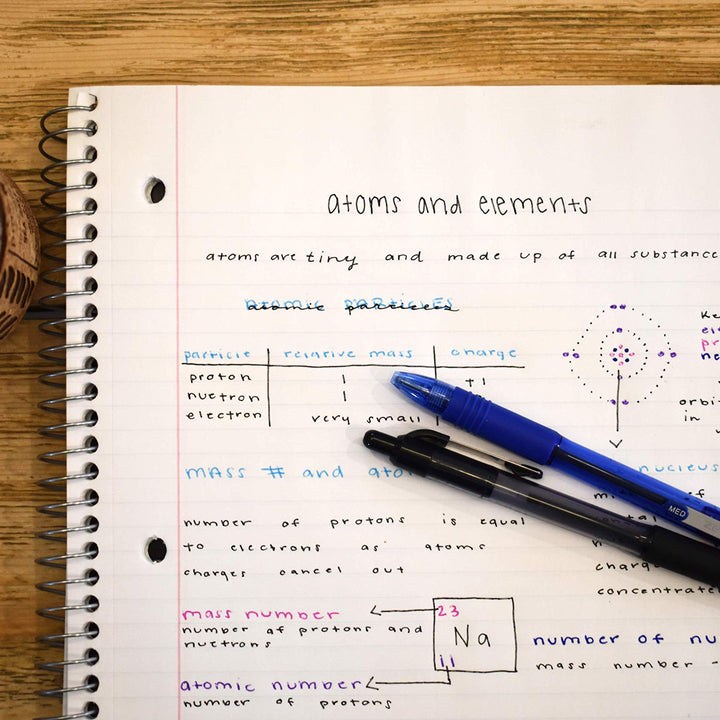 atoms and elements
atoms are tiny and made up of all substance
atomic particles
particle relative mass charge
proton 1 +1
nuetron 1
electron very small
orbi
in
MASS # and ato
nucleus
number of protons is equal
to electrons as atoms
charges cancel out
charg
concentrate
MED
mass number 23
number of protons and
nuetrons
Na
11
number of nu
mass number -
atomic number
number of protons